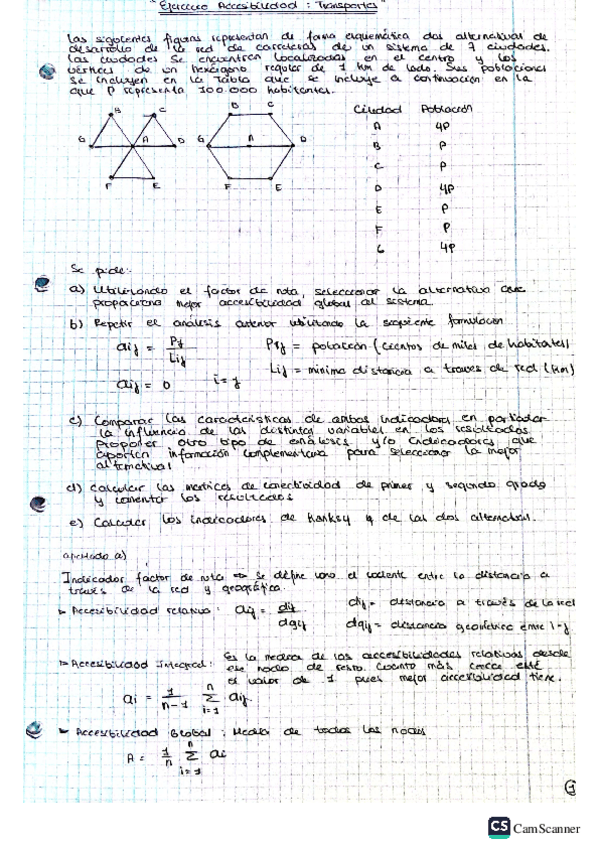 "Ejercicio Accesibilidad : Transportes"
Las siguientes figuras representan de forma esquemática dos alternativas de
desarrollo de la red de carreteras de un sistema de 7 ciudades.
Las ciudades se encuentran localizadas en el centro y los
vértices de un hexágono regular de 1 km de lado. Sus poblaciones
se incluyen en la tabla que se incluye a continuación en la
que P representa 100.000 habitantes.
B C
G A D
F E
B C
G A D
F E
Ciudad Población
A 4P
B P
C P
D 4P
E P
F P
G 4P
Se pide:
a) Utilizando el factor de ruta, seleccionar la alternativa que
proporciona mejor accesibilidad global al sistema.
b) Repetir el análisis anterior utilizando la siguiente formulación
aij = Pj / Lij
Pj = población (cientos de miles de habitantes)
aij = 0 i = j
Lij = mínima distancia a través de red (km)
c) Comparar las características de ambos indicadores en particular
la influencia de las distintas variables en los resultados
proponer otro tipo de análisis y/o indicadores que
aporten información complementaria para seleccionar la mejor
alternativa
d) Calcular las matrices de conectividad de primer y segundo grado
y comentar los resultados
e) Calcular los indicadores de de las dos alternativas.
apartado a)
Indicador factor de ruta ⇒ se define como el cociente entre la distancia a
través de la red y geográfica.
► Accesibilidad relativa: aij = dij / dgij
dij = distancia a través de la red
dgij = distancia geométrica entre i-j
► Accesibilidad integral:
Es la media de las accesibilidades relativas desde
ese nodo de resto. Cuanto más cerca esté
el valor de 1 pues mejor accesibilidad tiene.
ai = 1/n-1 Σ aij
n
i=1
► Accesibilidad Global: Media de todos los nodos
A = 1/n Σ ai
n
i=1
1
CS CamScanner